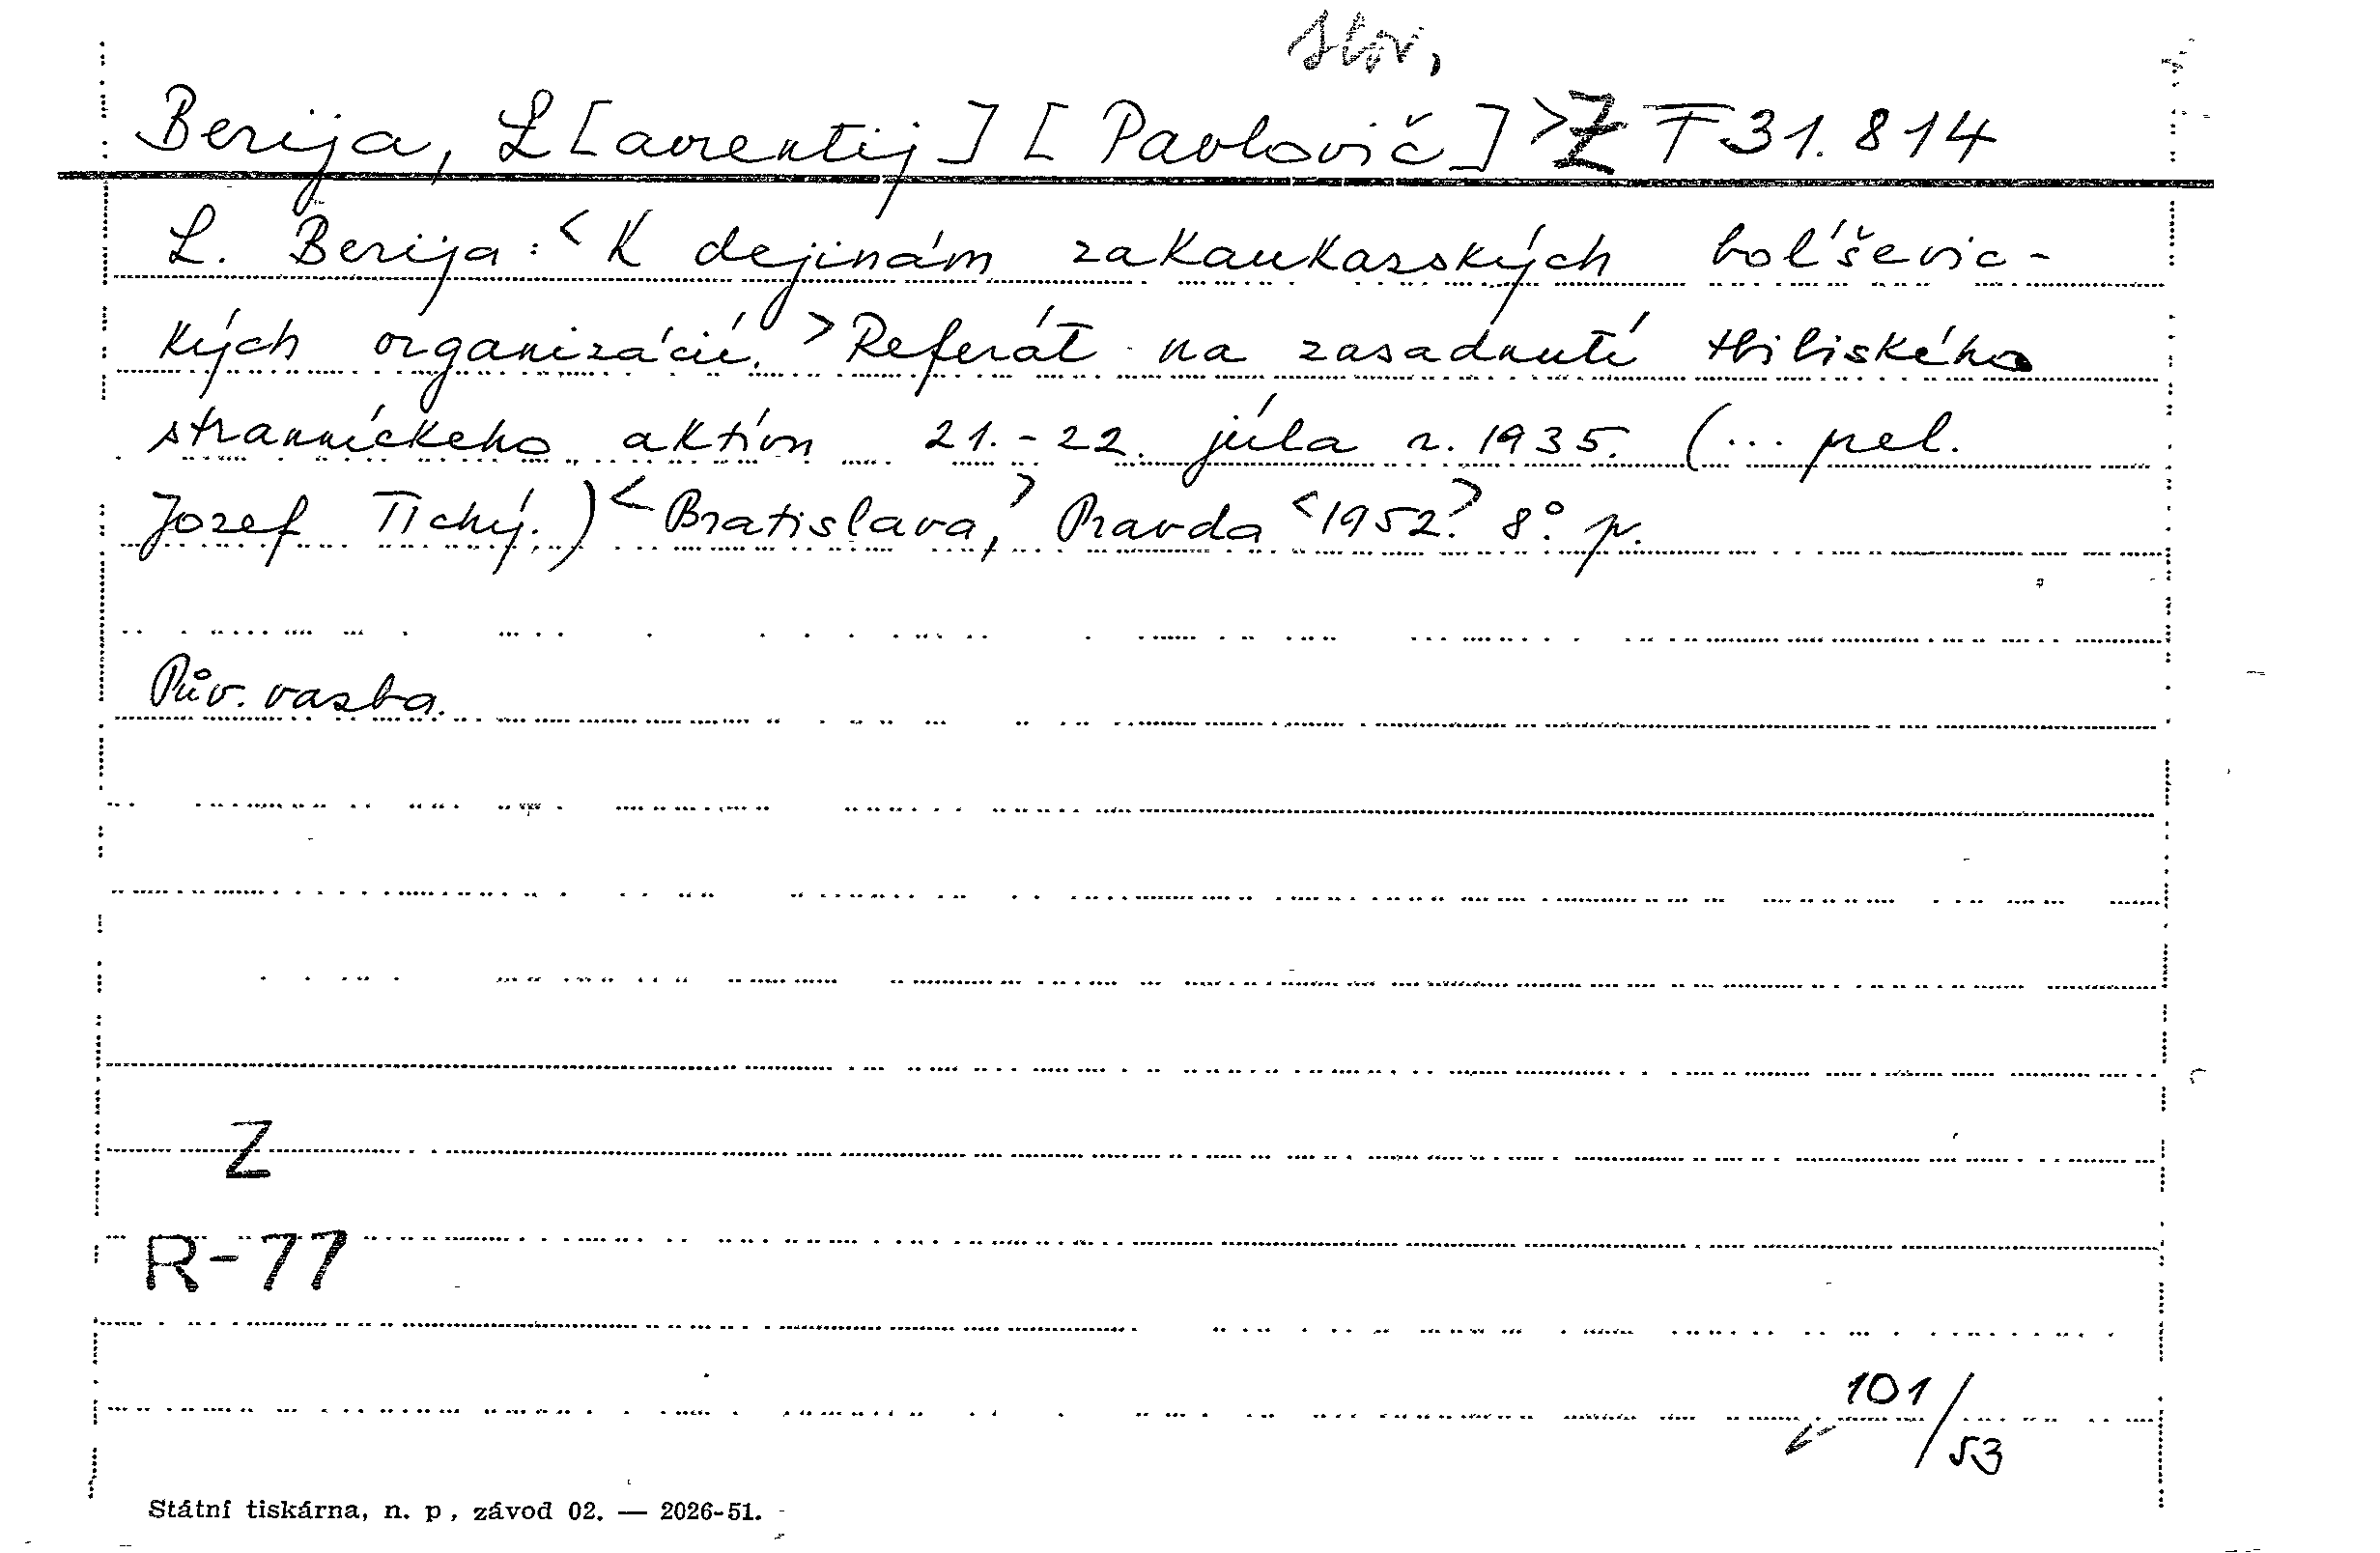 slov,
Berija, L[avrentij] [Pavlovič] > Z T 31.814
L. Berija: < K dejinám zakaukazských bol'ševic-
kých organizácií. > Referát na zasadnutí tbiliského
straníckeho aktívu 21.-22. júla r. 1935. (... prel.
Jozef Tichý.) < Bratislava, > Pravda < 1952. > 8° p.
Pův. vazba.
Z
R-77
101/53
Státní tiskárna, n. p., závod 02. — 2026-51.